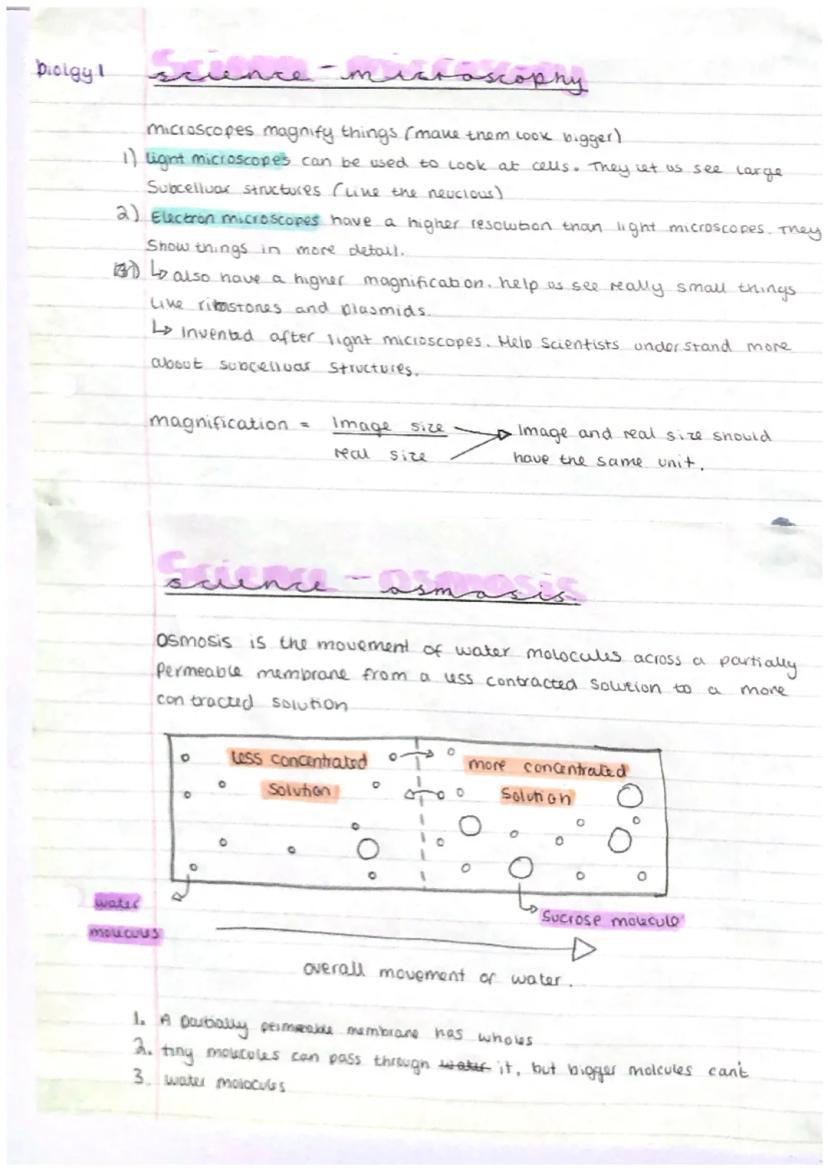 biolgy 1
science - microscopy
microscopes magnify things (make them look bigger)
1) Light microscopes can be used to look at cells. They let us see large
Subcelluar structures (like the neuclous)
2) Electron microscopes have a higher resolution than light microscopes. They
Show things in more detail.
↳ also have a higher magnification. help us see really small things
like and plasmids.
↳ Invented after light microscopes. Help Scientists understand more
about subcelluar structures.
magnification = Image size → Image and real size should
real size have the same unit.
science - osmosis
Osmosis is the movement of water molocules across a partially
permeable membrane from a less contracted solution to a more
contracted solution
less concentrated
solution
more concentrated
solution
water
moleculs
Sucrose molecule
overall movement of water.
1. A partially permeable membrane has wholes
2. tiny molecules can pass through water it, but bigger molcules can't
3. water molocules